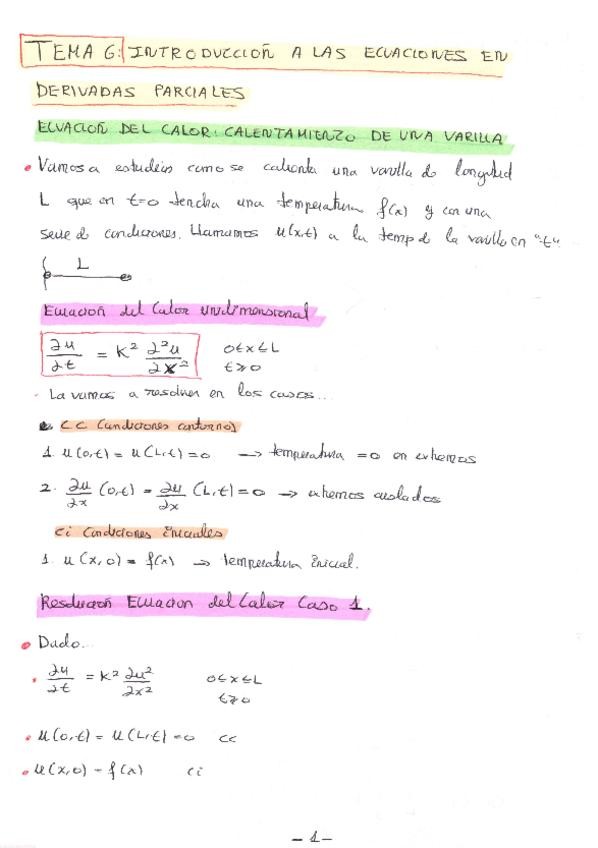 TEMA 6: INTRODUCCIOÑ A LAS ECUACIONES EN
DERIVADAS PARCIALES
ECUACIOÑ DEL CALOR: CALENTAMIENTO DE UNA VARILLA
• Vamos a estudiar como se calienta una varilla de longitud
L que en t=0 tendra una temperatura f(x) y con una
serie de condiciones. Llamamos u(x,t) a la temp de la varilla en "t"
L
Ecuacion del Calor unidimensional
∂u/∂t = K² ∂²u/∂x² 0≤x≤L
t≥0
- La vamos a resolver en los casos...
CC (Condiciones contorno)
1. u(0,t) = u(L,t) = 0 → temperatura = 0 en extremos
2. ∂u/∂x (0,t) = ∂u/∂x (L,t) = 0 → extremos aislados
Ci Condiciones Iniciales
1. u(x,0) = f(x) → temperatura inicial.
Resolucioñ Ecuacion del Calor Caso 1.
• Dado...
• ∂u/∂t = K² ∂u²/∂x² 0≤x≤L
t≥0
• u(0,t) = u(L,t) = 0 CC
• u(x,0) = f(x) Ci
- 1 -